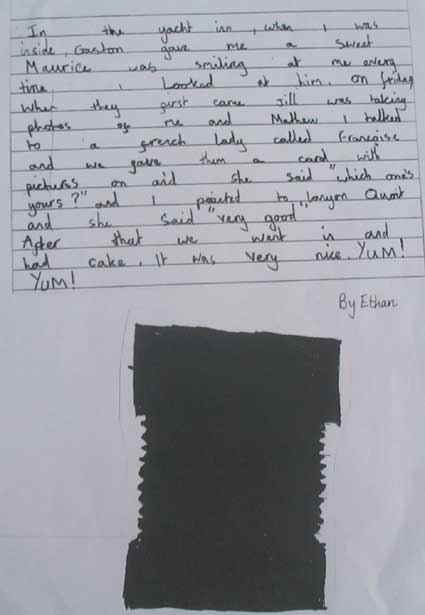 In the yacht inn, when I was
inside, Gaston gave me a sweet
Maurice was smiling at me every
time I Looked at him. On friday
When they first came Jill was taking
photos of me and Mathew I talked
to a french Lady called Françoise
and we gave them a card with
pictures on and she said "which one's
yours?" and I pointed to Lanyon Quoit
and she said "very good"
After that we went in and
had cake. It was very nice. YUM!
YUM!
By Ethan